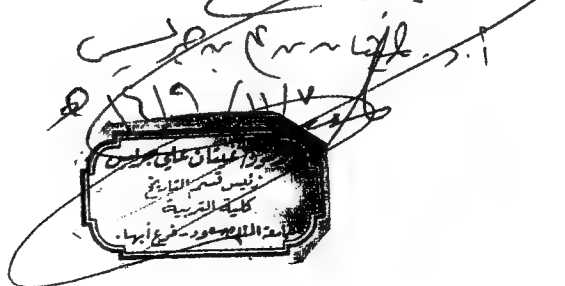 أ.د. غيثان بن علي بن جريس
١٤١٩/١١/٧ هـ
غيثان علي جريس
رئيس قسم التاريخ
كلية التربية
جامعة الملك سعود - فرع أبها.